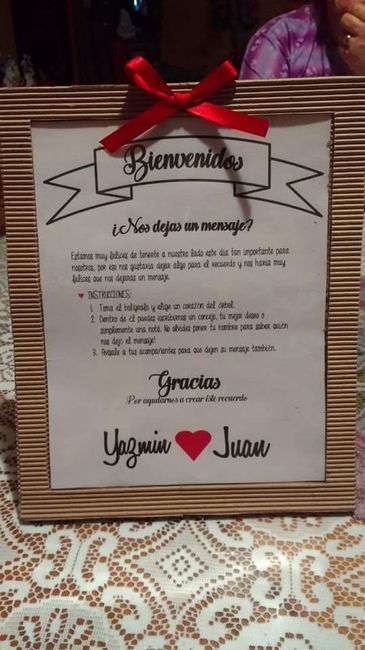 Bienvenidos
¿Nos dejas un mensaje?
Estamos muy felices de tenerte a nuestro lado este día tan importante para
nosotros, por eso nos gustaría dejar algo para el recuerdo y nos haría muy
felices que nos dejaras un mensaje.
INSTRUCCIONES:
1. Toma el bolígrafo y elige un corazón del árbol.
2. Dentro de él puedes escribirnos un consejo, tu mejor deseo o
simplemente una nota. No olvides poner tu nombre para saber quién
nos dejó el mensaje!
3. Avísale a tus acompañantes para que dejen su mensaje también.
Gracias
Por ayudarnos a crear éste recuerdo
Yazmin Juan